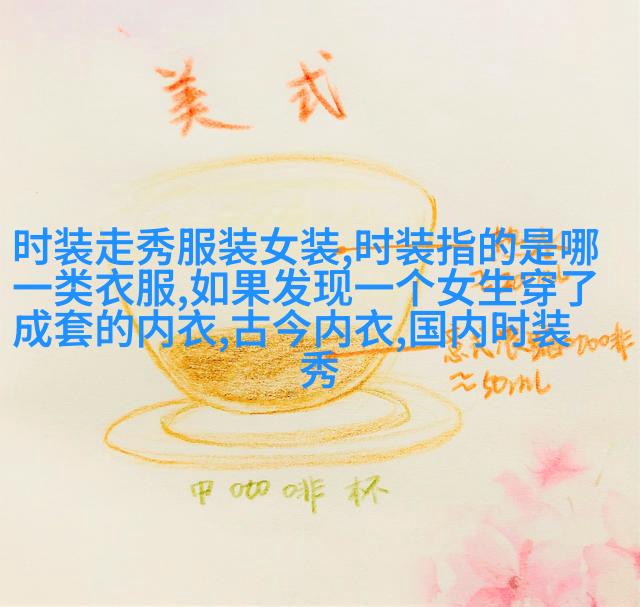 美式
时装走秀服装女装,时装指的是哪
一类衣服,如果发现一个女生穿了
成套的内衣,古今内衣,国内时装
秀
≈50mL
中咖啡杯